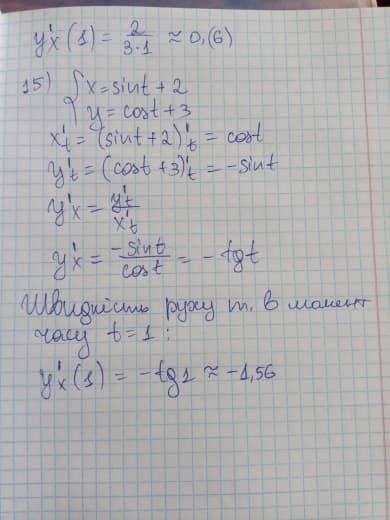 y'x (1) = 2/(3·1) ≈ 0,(6)
15) { x = sint + 2
y = cost + 3
x't = (sint + 2)'t = cost
y't = (cost + 3)'t = -sint
y'x = y't/x't
y'x = -sint/cost = -tgt
Швидкість руху т. в момент
часу t = 1 :
y'x (1) = -tg1 ≈ -1,56